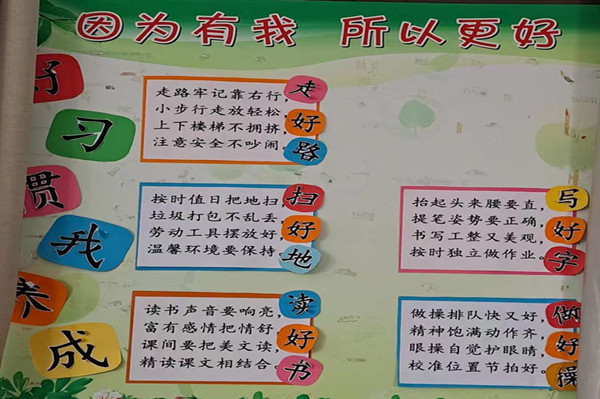 因为有我 所以更好
好
习
惯
我
养
成
走好路
走路牢记靠右行，
小步行走放轻松，
上下楼梯不拥挤，
注意安全不吵闹。
扫好地
按时值日把地扫，
垃圾打包不乱丢，
劳动工具摆放好，
温馨环境要保持。
写好字
抬起头来腰要直，
提笔姿势要正确，
书写工整又美观，
按时独立做作业。
读好书
读书声音要响亮，
富有感情把情舒，
课间要把美文读，
精读课文相结合。
做好操
做操排队快又好，
精神饱满动作齐，
眼操自觉护眼睛，
校准位置节拍好。